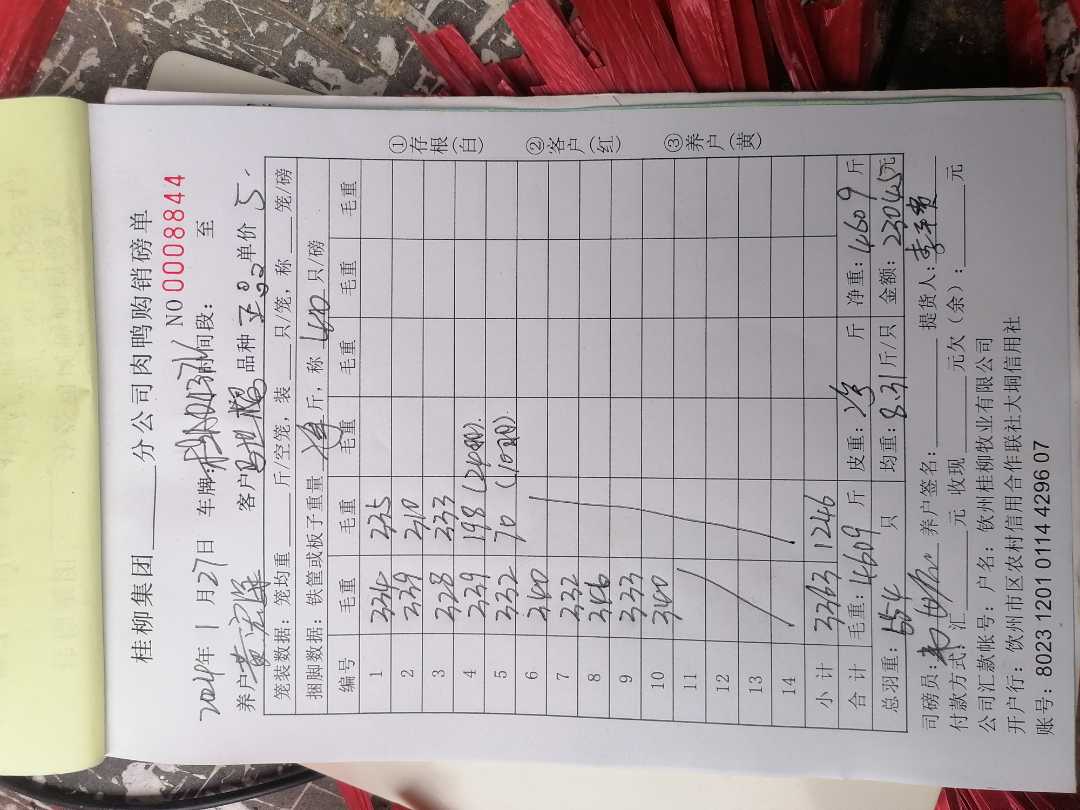 桂柳集团 分公司肉鸭购销磅单
NO 0008844
2024年1月27日 车牌 时间段: 至
养户 黄 客户 品种 正品 单价 5.
笼装数据: 笼均重 斤/空笼, 装 只/笼, 称 笼/磅
捆脚数据: 铁筐或板子重量 净 斤, 称 只/磅
编号 毛重 毛重 毛重 毛重 毛重
1 334 335
2 339 310
3 328 333
4 339 198 (24只).
5 332 70 (10只).
6 340
7 332
8 346
9 333
10 340
11
12
13
14
小计 3363 1246
合计 毛重: 4609 斤 皮重: 净 斤 净重: 4609 斤
总羽重: 554 只 均重: 8.31 斤/只 金额: 23045元
司磅员: 养户签名: 提货人: 李
付款方式: 汇 元 收现 元欠(余): 元
公司汇款帐号: 户名: 钦州桂柳牧业有限公司
开户行: 钦州市区农村信用合作联社大垌信用社
账号: 8023 1201 0114 4296 07
①存根(白)
②客户(红)
③养户(黄)